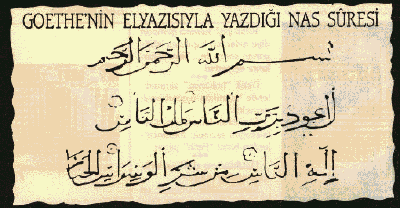 GOETHE'NİN ELYAZISIYLA YAZDIĞI NAS SÛRESİ
بسم الله الرحمن الرحيم
اعوذ برب الناس ملك الناس
اله الناس من شر الوسواس الخنا